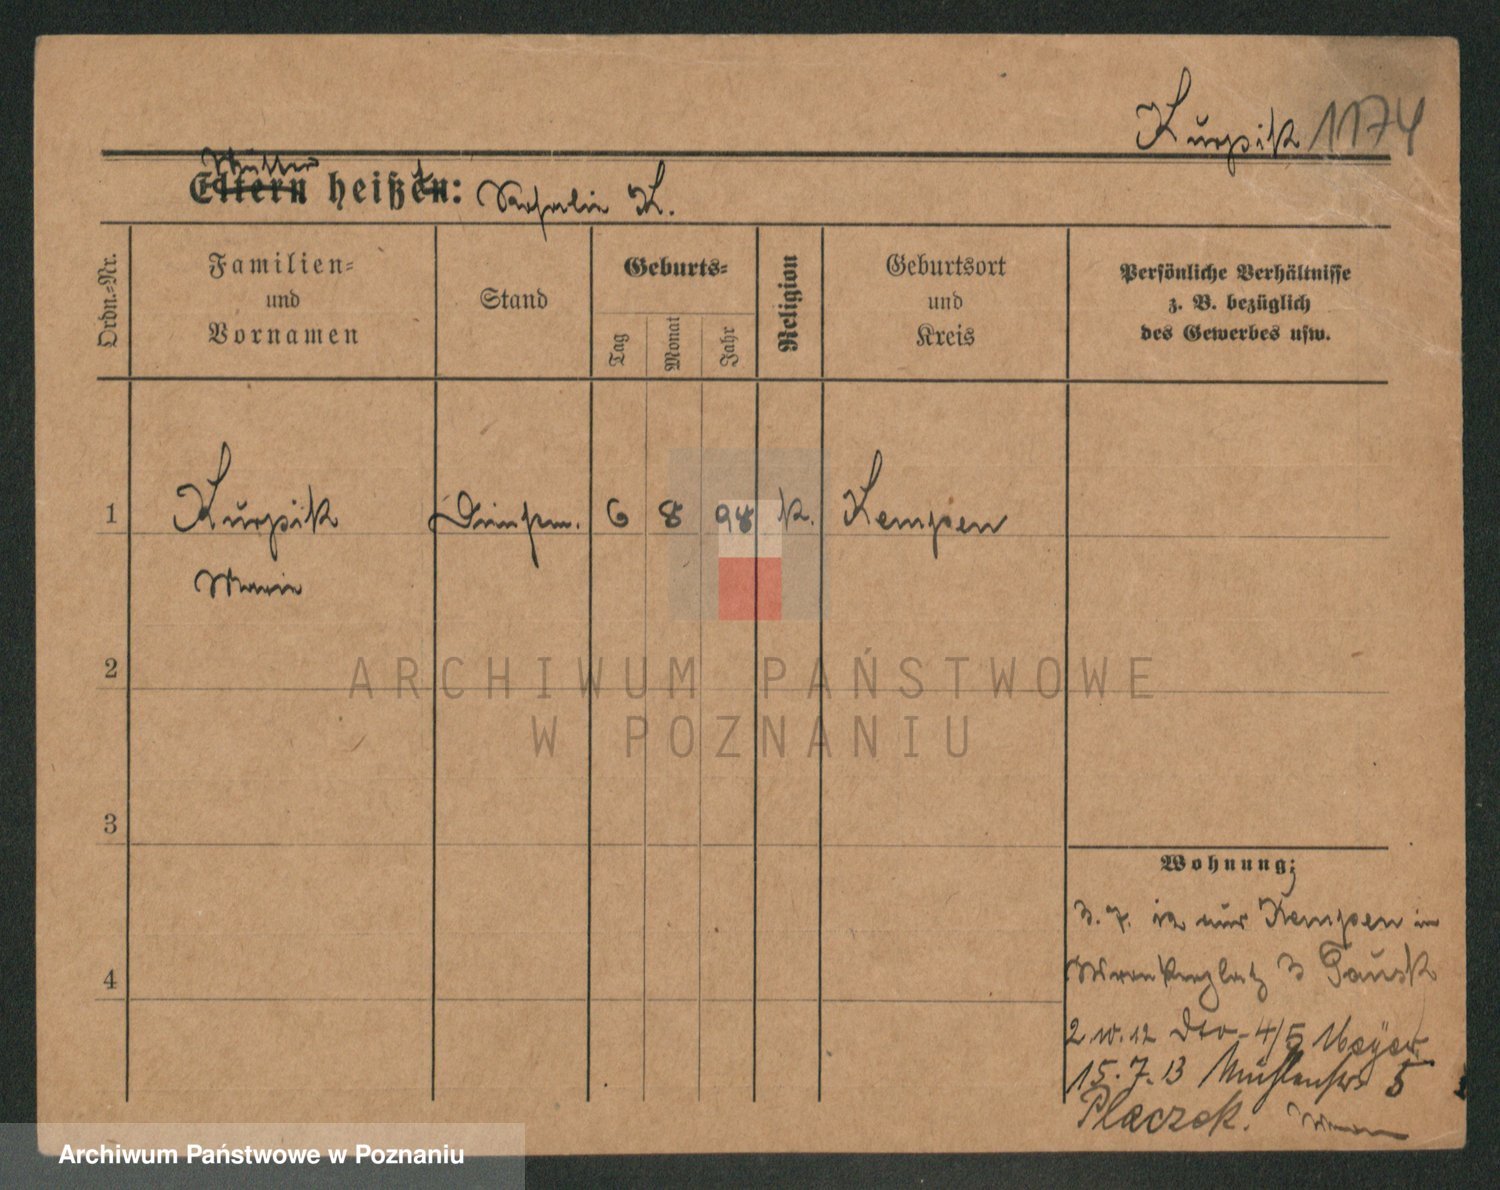 Kurpik 1174
Mutter
Eltern heißen: Rosalie K.
Ordn.-Nr.
Familien-
und
Vornamen
Stand
Geburts-
Tag
Monat
Jahr
Religion
Geburtsort
und
Kreis
Persönliche Verhältnisse
z. B. bezüglich
des Gewerbes usw.
1 Kurpik Dienstm. 6 8 98 k. Kempen
Marie
2
3
4
Wohnung;
3. 7. 12 aus Kempen in
3 Pausk
2 10. 12 dto - 4/5 Meyer
15. 7. 13 Mühlenstr 5
Placzek.
ARCHIWUM PAŃSTWOWE
W POZNANIU
Archiwum Państwowe w Poznaniu